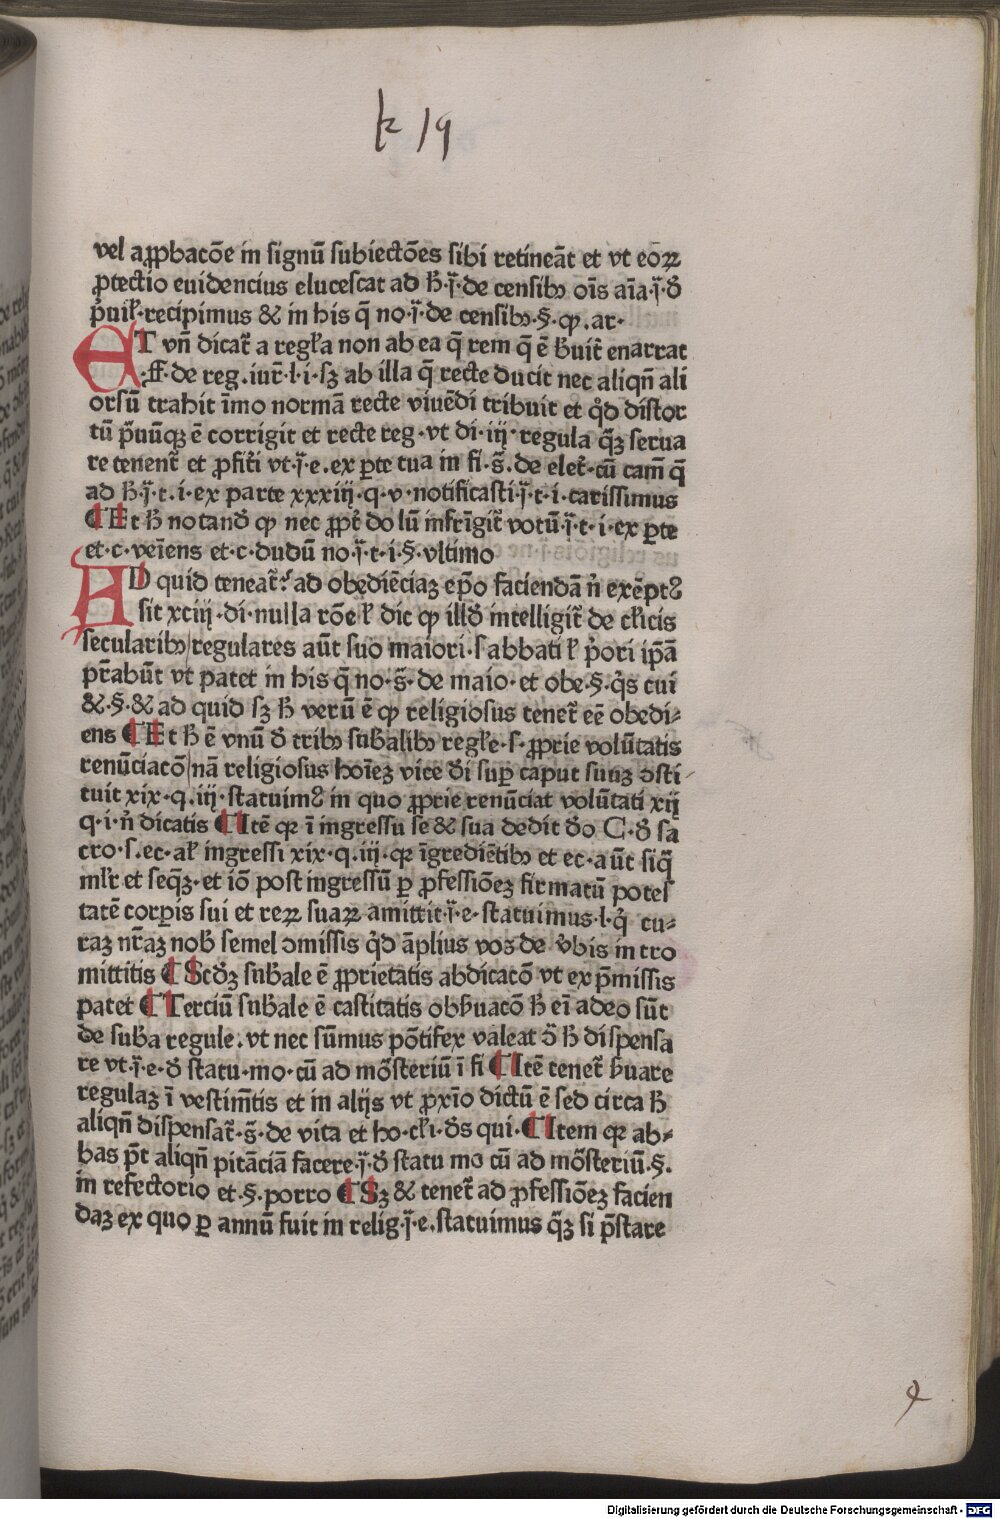 k 19
vel aꝓpbacõe in signũ subiectões sibi retineãt et vt eoꝝ
ꝓtectio euidencius elucescat ad h̄·j̈·de censibꝫ oīs aīa·j̈·đ
p̄uiꝉ·recipimus & in his q̄ no·j̈·de censibꝫ·§·ꝙ·ar·
ET vñ dicať a regꝉa non ab ea q̄ rem q̄ ē ħuit enarrat
·ff·de reg·iur̄·l·i·sꝫ ab illa q̄ recte ducit nec aliqñ ali
orsũ trahit īmo normã recte viuēdi tribuit et qđ distor
tũ p̄nūqꝫ ē corrigit et recte reg·vt di·iij·regula q̄ꝫ serua
re tenent̄ et ꝓfiťi vt·j̈·e·ex ꝑte tua in fi·s̈·de elect̄·cũ cam̄ q̄
ad h̄·j̈·t·i·ex parte xxxiij·q·v·notificasti·j̈·t·i·carissimus
¶Et h̄ notanđ ꝙ nec ꝓpt̄ dolũ infrīgit̄ votũ·j̈·t·i·ex ꝑte
et·c·veīens et·c·dudũ no·j̈·t·i·§·vltimo
AD quid teneat̄ ad obediēciaꝫ ep̄o faciendã ṅ exēptꝰ
sit xciij·di·nulla rõe ꝉ dic ꝙ illđ intelligit̄ de cꝉicis
secularibꝫ regulares aūt suo maiori·s abbati ꝉ p̄ori ip̄ã
pr̄abūt vt patet in his q̄ no·s̈·de maio·et obe·§·q̄s cui
&·§·& ad quid sꝫ h̄ verũ ē ꝙ religiosus tenet̄ eē obedi⸗
ens ¶Et h̄ ē vnũ đ tribꝫ subalibꝫ regꝉe·s·ꝓprie volũtatis
renũciacõ nã religiosus hoīeꝫ vice đi suꝑ caput suuꝫ ꝯsti⸗
tuit xix·q·iij·statuimꝰ in quo ꝓprie renũciat volũtati xij
q·i·ṅ dicatis ¶Itē qꝛ ī ingressu se & sua dedit đo C·đ sa
cro·s·ec·aꝉ ingressi xix·q·iij·qꝛ īgrediētibꝫ et ec·aūt siq̄
mꝉr et seqꝫ·et iõ post ingressũ ꝑ ꝓfessiõeꝫ firmatũ potes
tatē corꝑis sui et reꝝ suaꝝ amittit·j̈·e·statuimus·l·q̇ cu⸗
raꝫ nr̄aꝫ nob̄ semel ꝯmissis qđ ãplius vos de v̄bis intro
mittitis ¶Scđꝫ sub̄ale ē ꝓprietatis abdicacõ vt ex p̄missis
patet ¶Terciũ sub̄ale ē castitatis obħuacõ h̄ eī adeo sūt
de sub̄a regule·vt nec sũmus põtifex valeat ꝯ̈ h̄ dispensa
re vt·j̈·e·đ statu·mo·cũ ad mõsteriũ ī fi ¶Itē tenet̄ ħuare
regulaꝫ ī vestim̄tis et in alijs vt ꝓxīo dictũ ē sed circa h̄
aliqñ dispensat̄·s̈·de vita et ho·cꝉi·đs qui·¶Item qꝛ ab⸗
bas pr̄t aliqñ pitãciã facere·j̈·đ statu mo cũ ad mõsteriũ·§·
in refectorio et·§·porro ¶Sꝫ & tenet̄ ad ꝓfessiõeꝫ facien
daꝫ ex quo ꝑ annũ fuit in relig·j̈·e·statuimus q̄ꝫ si p̄stare
Digitalisierung gefördert durch die Deutsche Forschungsgemeinschaft - DFG